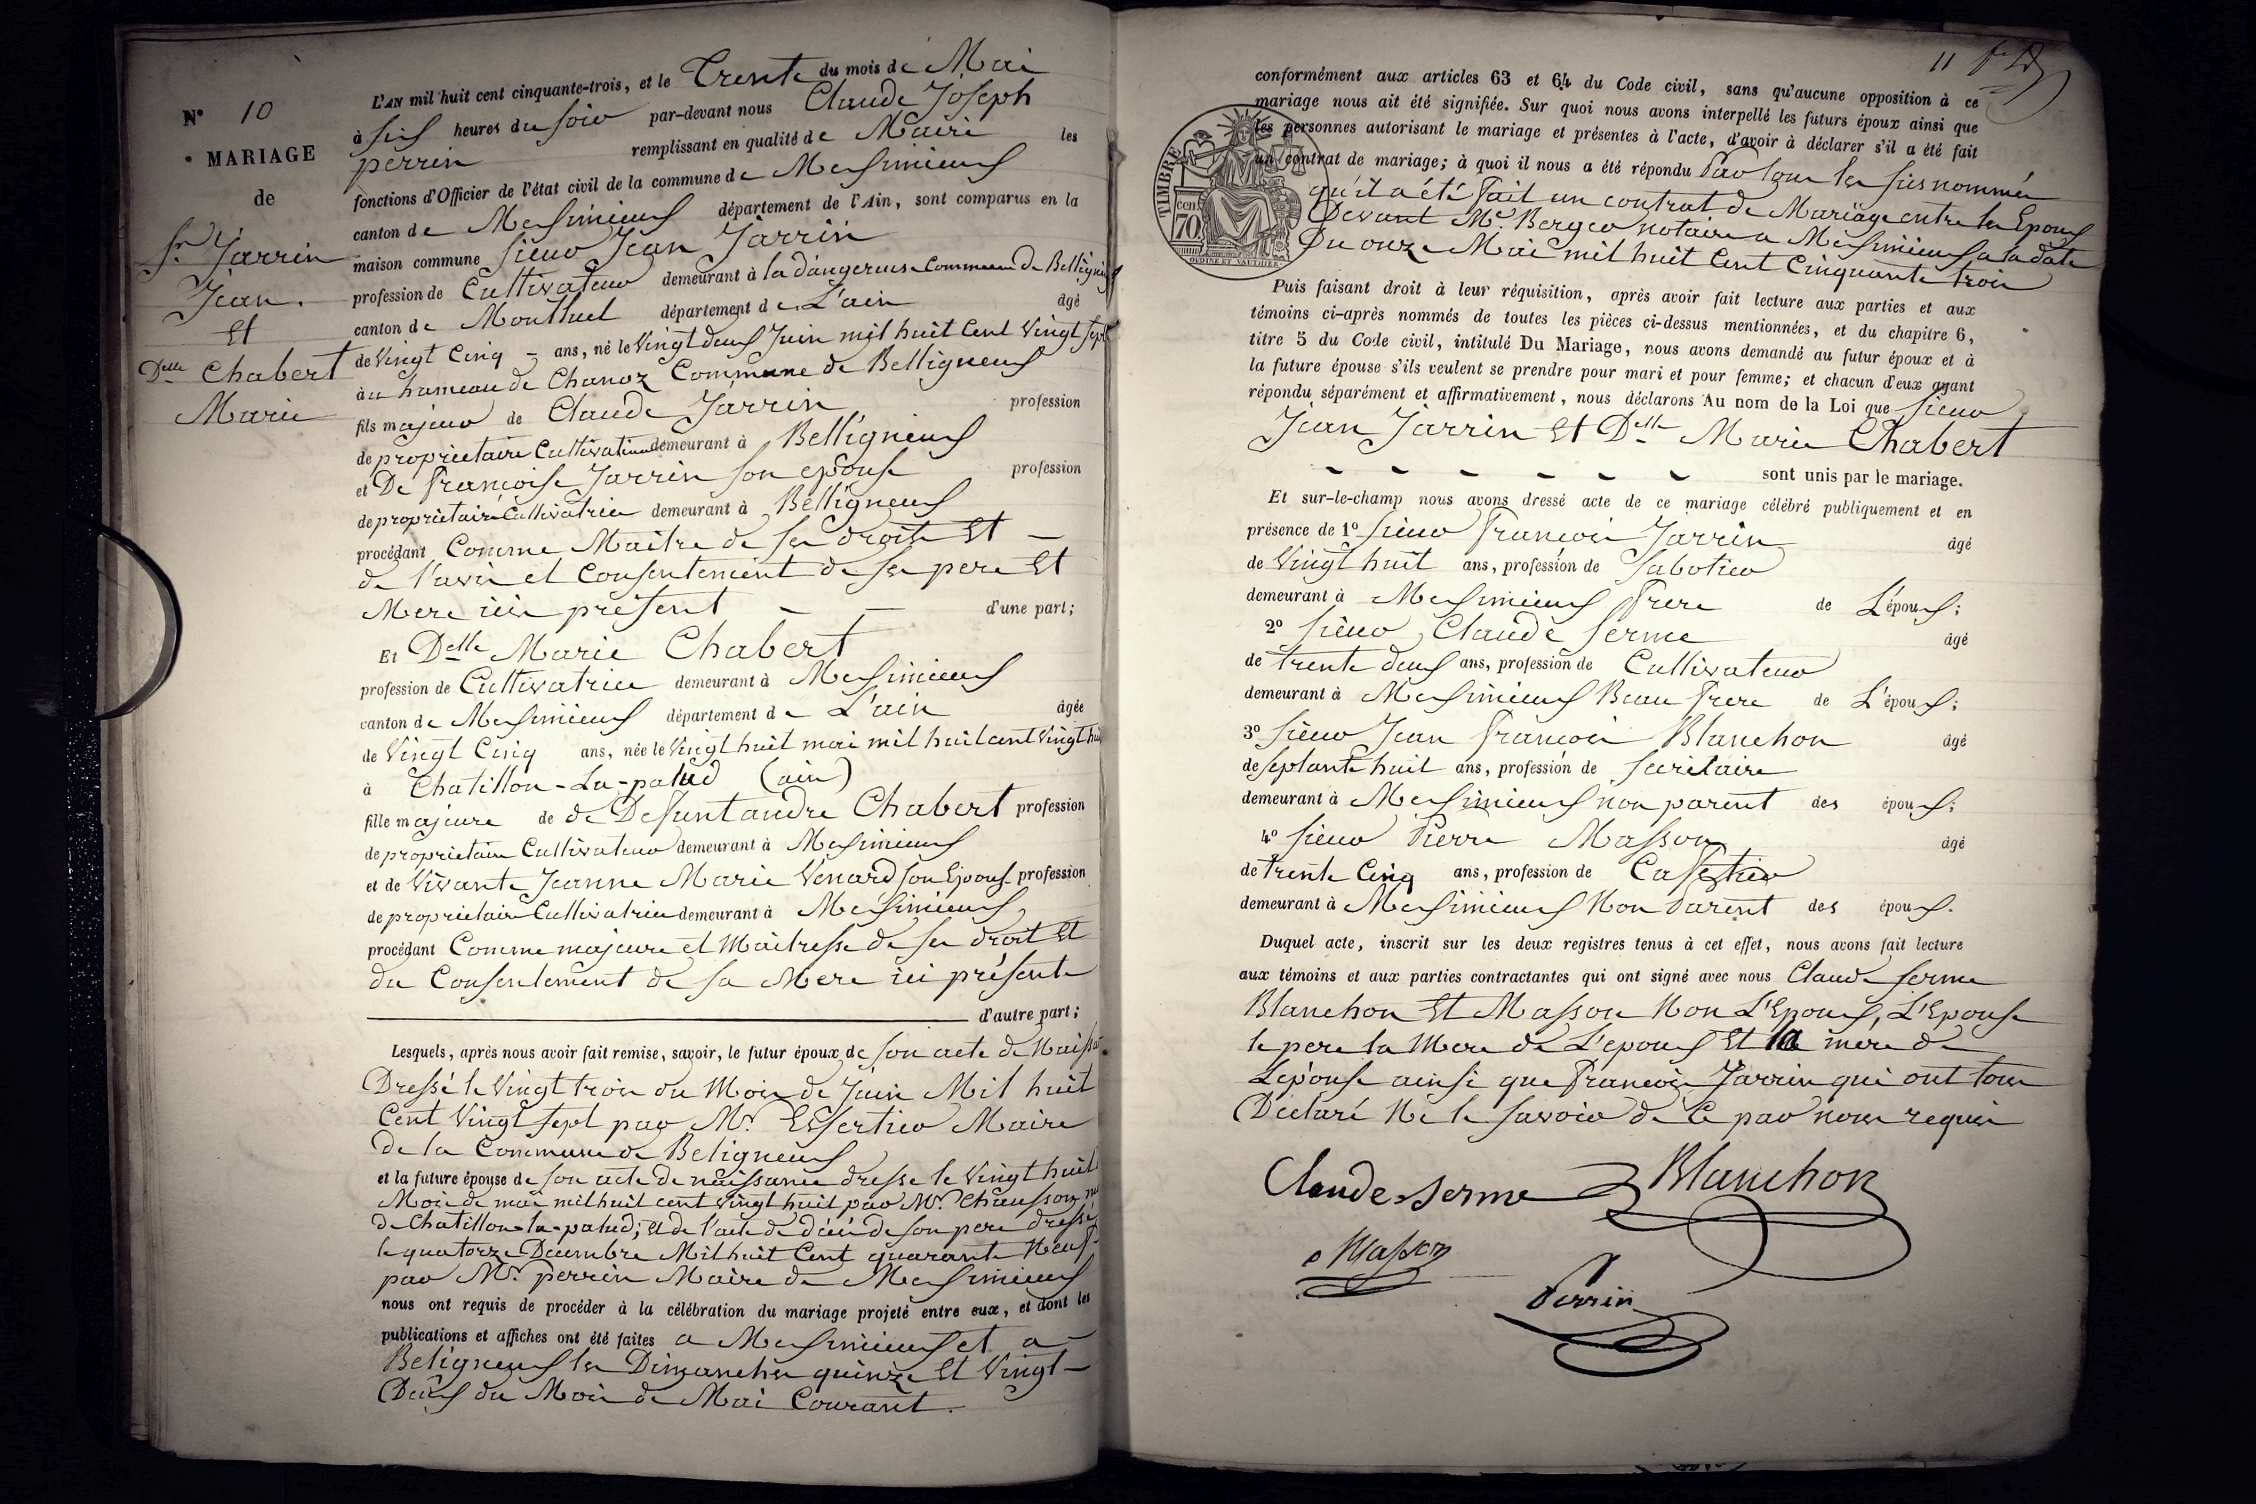 N° 10
MARIAGE
de
Sr Jarrin
Jean.
Et
Delle Chabert
Marie
L'AN mil huit cent cinquante-trois, et le Trente du mois de Mai
à six heures du soir par-devant nous Claude Joseph
perrin remplissant en qualité de Maire les
fonctions d'Officier de l'état civil de la commune de Meximieux
canton de Meximieux département de l'Ain, sont comparus en la
maison commune sieur Jean Jarrin
profession de Cultivateur demeurant à la dangereuse Commune de Belligneux
canton de Montluel département de L'ain âgé
de Vingt Cinq - ans, né le Vingt deux Juin mil huit Cent Vingt Sept
à au hameau de Chanoz Commune de Belligneux
fils majeur de Claude Jarrin profession
de proprietaire Cultivateur demeurant à Belligneux
et De françoise Jarrin son epouse profession
de proprietaire Cultivatrice demeurant à Belligneux
procédant Comme Maitre de ses droits Et
de l'avis et Consentement de ses pere Et
Mere ici présent d'une part;
Et Delle Marie Chabert
profession de Cultivatrice demeurant à Meximieux
canton de Meximieux département de L'ain âgée
de Vingt Cinq ans, née le Vingt huit mai mil huit cent Vingt huit
à Chatillon-La-palud (ain)
fille majeure de de Defunt andre Chabert profession
de proprietaire Cultivateur demeurant à Meximieux
et de Vivante Jeanne Marie Venard son Epouse profession
de proprietaire Cultivatrice demeurant à Meximieux
procédant Comme majeure et Maitresse de ses droit Et
du Consentement de sa Mere ici présente
d'autre part;
Lesquels, après nous avoir fait remise, savoir, le futur époux de son acte de Naissance
Dressé le Vingt trois du Mois de Juin Mil huit
Cent Vingt sept par Mr. Essertier Maire
de la Commune de Beligneux
et la future épouse de son acte de naissance dresse le Vingt huit
Mois de mai mil huit cent Vingt huit par Mr. Chausson
de Chatillon-la-palud; et de l'acte de décé de son pere dressé
le quatorze Decembre Mil huit Cent quarante Neuf
par Mr. perrin Maire de Meximieux
nous ont requis de procéder à la célébration du mariage projeté entre eux, et dont les
publications et affiches ont été faites a Meximieux et a
Beligneux les Dimanches quinze Et Vingt
Deux du Mois de Mai Courant.
11
conformément aux articles 63 et 64 du Code civil, sans qu'aucune opposition à ce
mariage nous ait été signifiée. Sur quoi nous avons interpellé les futurs époux ainsi que
les personnes autorisant le mariage et présentes à l'acte, d'avoir à déclarer s'il a été fait
un contrat de mariage; à quoi il nous a été répondu Par tous les susnommés
qu'il a été fait un contrat de Mariage entre les Epoux
Devant Me. Berger notaire a Meximieux a la date
Du onze Mai mil huit Cent Cinquante trois
TIMBRE
70 cen
Puis faisant droit à leur réquisition, après avoir fait lecture aux parties et aux
témoins ci-après nommés de toutes les pièces ci-dessus mentionnées, et du chapitre 6,
titre 5 du Code civil, intitulé Du Mariage, nous avons demandé au futur époux et à
la future épouse s'ils veulent se prendre pour mari et pour femme; et chacun d'eux ayant
répondu séparément et affirmativement, nous déclarons Au nom de la Loi que sieur
Jean Jarrin Et Delle Marie Chabert
sont unis par le mariage.
Et sur-le-champ nous avons dressé acte de ce mariage célébré publiquement et en
présence de 1° Sieur françois Jarrin âgé
de Vingt huit ans, profession de Sabotier
demeurant à Meximieux frere de L'époux;
2° Sieur Claude Serme âgé
de trente deux ans, profession de Cultivateur
demeurant à Meximieux Beau frere de L'époux;
3° Sieur Jean françois Blanchon âgé
de septante huit ans, profession de Secretaire
demeurant à Meximieux non parent des époux;
4° Sieur Pierre Masson âgé
de trente Cinq ans, profession de Cafetier
demeurant à Meximieux Non Parent des époux.
Duquel acte, inscrit sur les deux registres tenus à cet effet, nous avons fait lecture
aux témoins et aux parties contractantes qui ont signé avec nous Claude Serme
Blanchon Et Masson Non L'Epoux, L'Epouse
le pere la Mere de L'epoux Et la mere de
Lepouse ainsi que françois Jarrin qui ont tous
Déclaré Ne le savoir de Ce par nous requis
Claude Serme Blanchon
Masson
Perrin